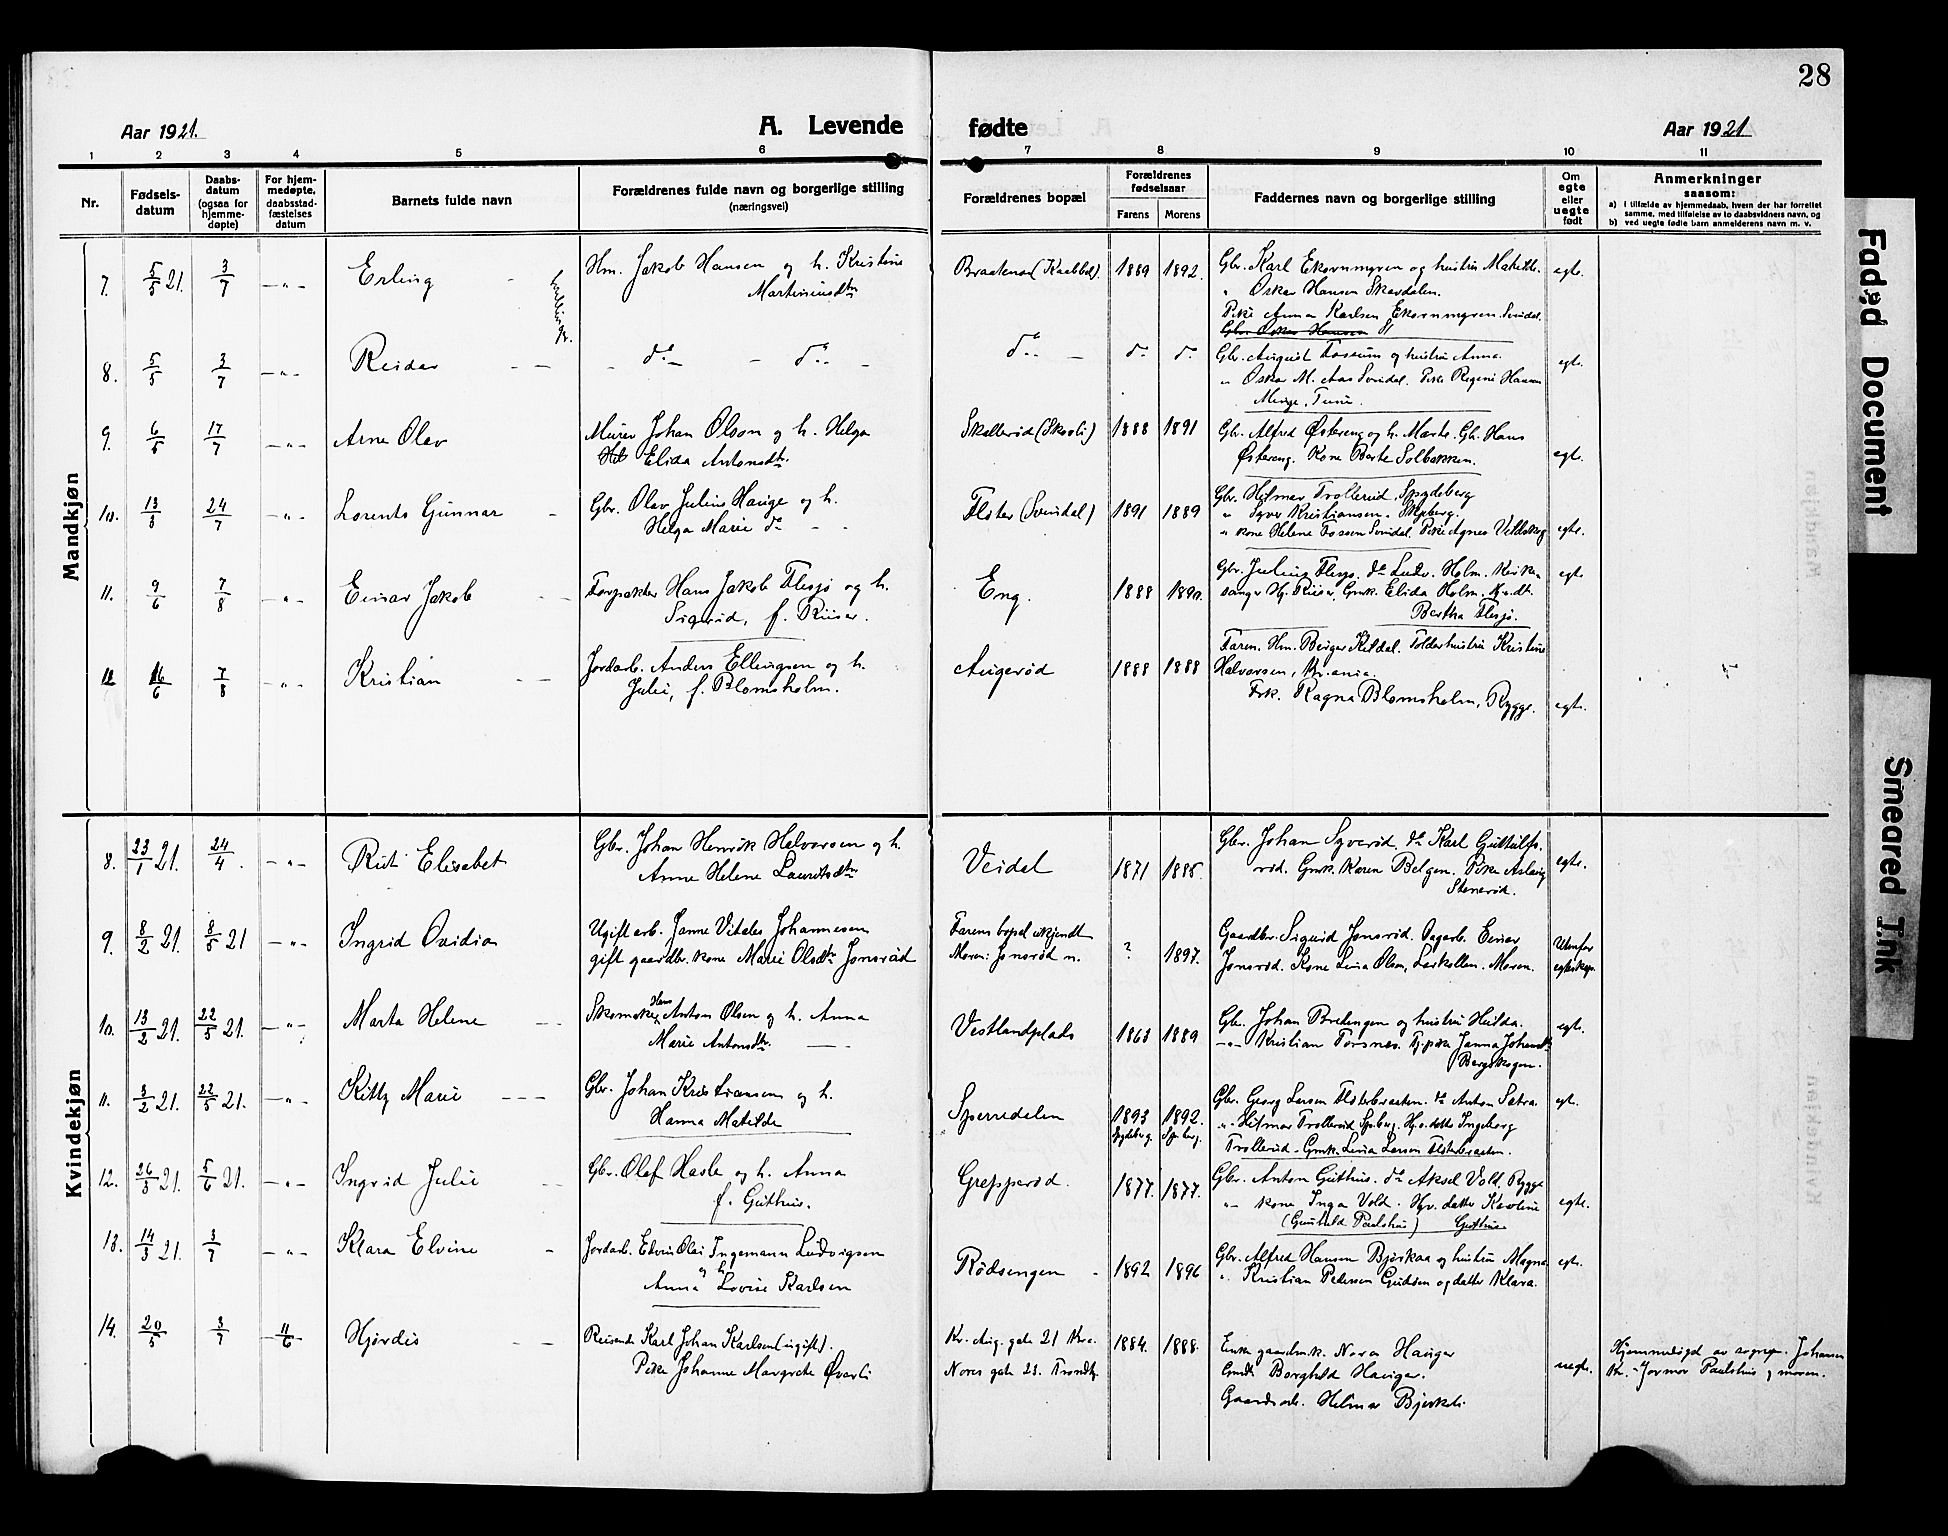 28
Aar 1921.
A. Levende fødte
Aar 1921
1 2 3 4 5 6 7 8 9 10 11
Nr.
Fødsels-
datum
Daabs-
datum
(ogsaa for
hjemme-
døpte)
For hjem-
medøpte,
daabsstad-
fæstelses
datum
Barnets fulde navn
Forældrenes fulde navn og borgerlige stilling
(næringsvei)
Forældrenes bopæl
Forældrenes
fødselsaar
Farens Morens
Faddernes navn og borgerlige stilling
Om
egte
eller
uegte
født
Anmerkninger
saasom:
a) i tilfælde av hjemmedaab, hvem der har forrettet
samme, med tilføielse av to daabsvidners navn, og
b) ved uegte fødte barn anmelderens navn m. v.
Mandkjøn
7. 5/5 21. 3/7 -„- Erling
Hm. Jakob Hansen og h. Kristine
Martiniusdtr
1889 1892.
Gbr. Karl Ekornmyren og hustru Mathilde.
„ Oskar Hansen Skovdalen.
Pike Anna Karlsen Ekornmyren. Svindal.
Gbr. Oskar Hansen
egte.
8. 5/5 3/7 -„- Reidar
do - do -
do - do do
Gbr. August Fossum og hustru Anna.
„ Oskar M. Aas Svindal. Pike Regine Hansen
egte.
9. 6/5 17/7 -„- Arne Olav
Murer Johan Olson og h. Helga
Hel Elida Antonsdtr.
Skallerød (Skaoli) 1888 1891
Gbr. Alfred Østereng og h. Marte. Gbr. Hans
Østereng. Kone Berte Solbakken.
egte.
10. 13/3 24/7 -„- Lorents Gunnar
Gbr. Olav Julius Hauge og h.
Helga Marie do
Elster (Svindal) 1891 1889
Gbr. Hilmar Trollerud, Spydeberg
„ Syver Kristiansen.
„ kone Helene Fossen Svindal. Pike Agnes
egte.
11. 9/6 7/8 -„- Einar Jakob
Forpakter Hans Jakob Flesjø og h.
Sigrid, f. Riiser.
Eng. 1888 1890.
Gbr. Julius Flesjø. do Ludv. Holm. Kirke-
sanger Hj. Riiser. Gmk. Elida Holm.
Bertha Flesjø.
egte
12 16/6 7/8 -„- Kristian
Jordarb. Anders Ellingsen og h.
Julie, f. Blomsholm.
Augerød 1888 1888
Faren. Hm. Birger Kildal. Tolderhustru Kristine
Halvorsen, Kr.ania.
Frk. Ragna Blomsholm, Rygge.
egte.
Kvindekjøn
8. 23/1 21. 24/4 -„- Rut Elisabet
Gbr. Johan Henrik Halvorsen og h.
Anne Helene Lauritsdtr
Veidal 1871 1885.
Gbr. Johan Syverød. do Karl Guttulfs-
rød. Gmk. Karen Belgen. Pike Aslaug
Stenerød.
egte.
9. 8/2 21. 8/5 21 -„- Ingrid Ovidia
Ugift arb. Janne Vitales Johannesen
gift gaardbr. kone Marie Olsdtr Jonsrød
Farens bopæl ukjendt
Moren: Jonsrød n. ? 1897.
Gaardbr. Sigurd Jonsrød. Dagarb. Einar
Jonsrød. Kone Lina Olsen, Larkollen. Moren.
Utenfor
egteskap.
10. 13/2 21. 22/5 21. -„- Marta Helene
Skomaker Hans Anton Olsen og h. Anna
Marie Antonsdtr.
Vestlandplads 1863 1889
Gbr. Johan Bredengen og hustru Hulda.
-„- Kristian Torsnes. Tj.pike Janna Johansdtr
Bergskogen.
egte.
11. 8/2 21. 22/5 21. -„- Kitty Marie
Gbr. Johan Kristiansen og h.
Hanna Matilde
Sperredalen 1893 1892.
Spydeberg. Sp.berg.
Gbr. Georg Larsen Elsterbraaten. do Anton Sætra.
„ Hilmar Trollerud Sp.berg. Hj.v.datter Ingeborg
Trollerud. Gmk. Lina Larsen Elsterbraaten.
egt.
12. 26/3 21. 5/6 21. -„- Ingrid Julie
Gbr. Olaf Hasle og h. Anna
f. Guthus.
Grepperød. 1877. 1877.
Gbr. Anton Guthus. do Aksel Vold, Rygge
„ kone Inga Vold. Hjv. datter Karoline
(Gunhild Paulshus) Guthus.
egte.
13. 14/3 21. 3/7 -„- Klara Elvine
Jordarb. Edvin Olai Ingemann Ludvigsen
og h
Anna Lovise Karlsen
Rødsengen 1892 1896
Gbr. Alfred Hansen Bjørkaa og hustru Magna
„ Kristian Pedersen Gudsen og datter Klara.
egte.
14. 20/5 3/7 11/6 Hjørdis
Reisende Karl Johan Karlsen (ugift).
Pike Johanne Margrete Øverli
Kr. Aug. gate 21 Kra.
Nores gate 23. Trondhj. 1884. 1888.
Enke gaardmk. Nora Hauger
Gmdt. Borghild Hauger.
Gaardsarb. Hilmar Bjerkeli.
uegte.
Hjemmedøpt av sognepr. Johansen
Kr.- Jormor Paulshus og moren.
Faded Document
Smeared Ink